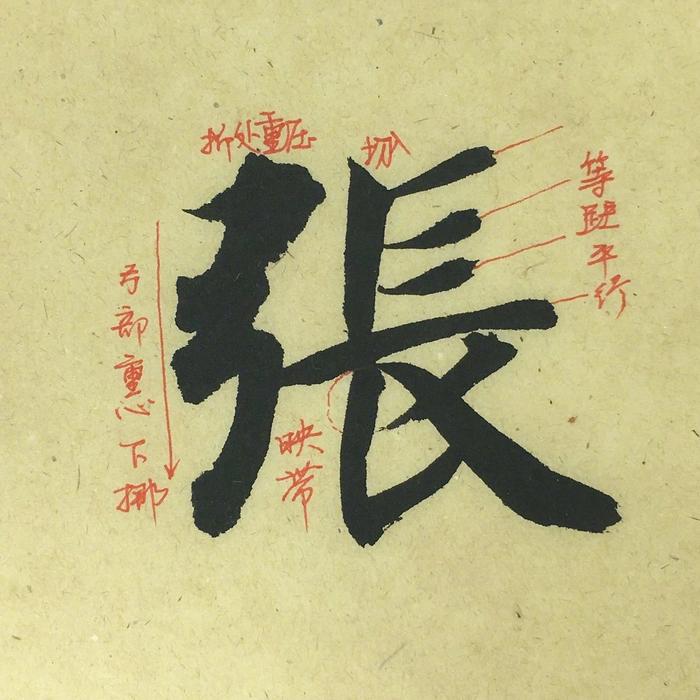 折处重压
切入
等距平行
弓部重心下挪
張
映带